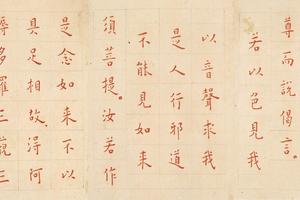 尊而說偈言
若以色見我
以音聲求我
是人行邪道
不能見如来
須菩提。汝若作
是念如来不以
具足相故。得阿
耨多羅三藐三